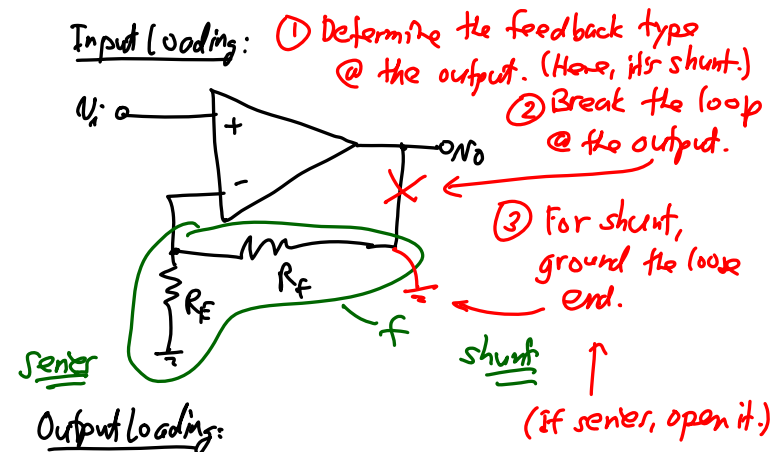 Input Loading:
① Determine the feedback type
@ the output. (Here, it's shunt.)
② Break the loop
@ the output.
Vi
+
-
Vo
③ For shunt,
ground the loose
end.
RF
RE
f
series
shunt
(If series, open it.)
Output Loading: